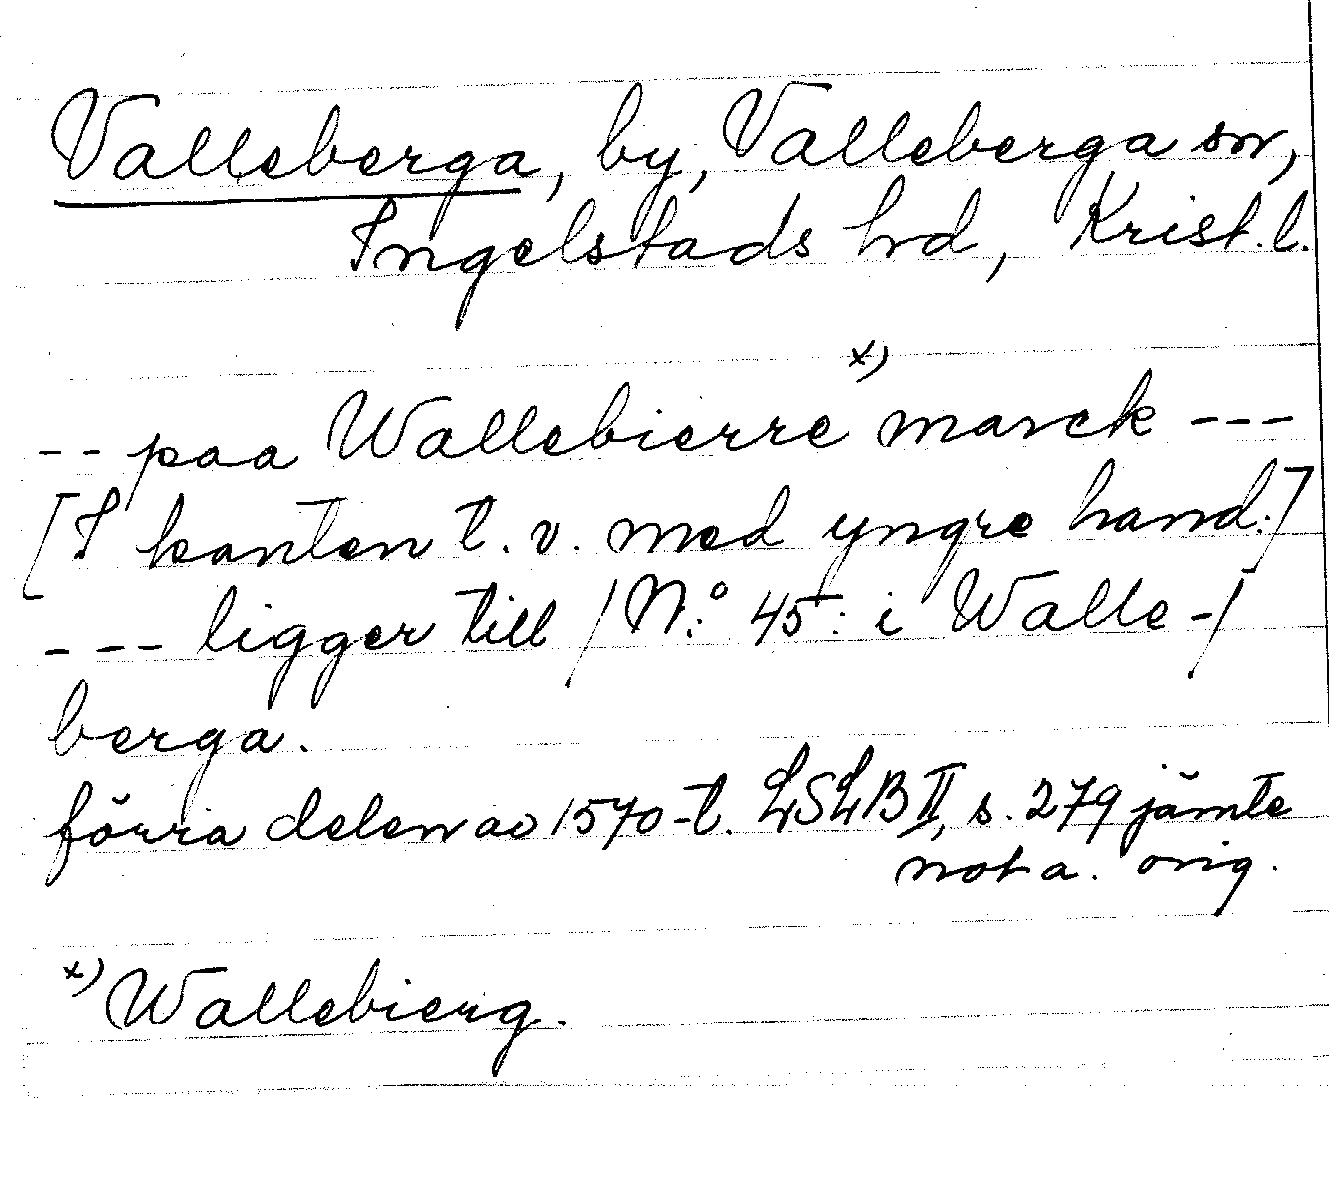 Valleberga, by, Valleberga sn,
Ingelstads hrd, Krist. l.
-- paa Wallebierre x) marck ---
[I kanten t. v. med yngre hand:]
--- ligger till / N:o 45: i Walle-/
berga.
förra delen av 1570-t. LSLB II, s. 279 jämte
not a. orig.
x) Wallebierg.